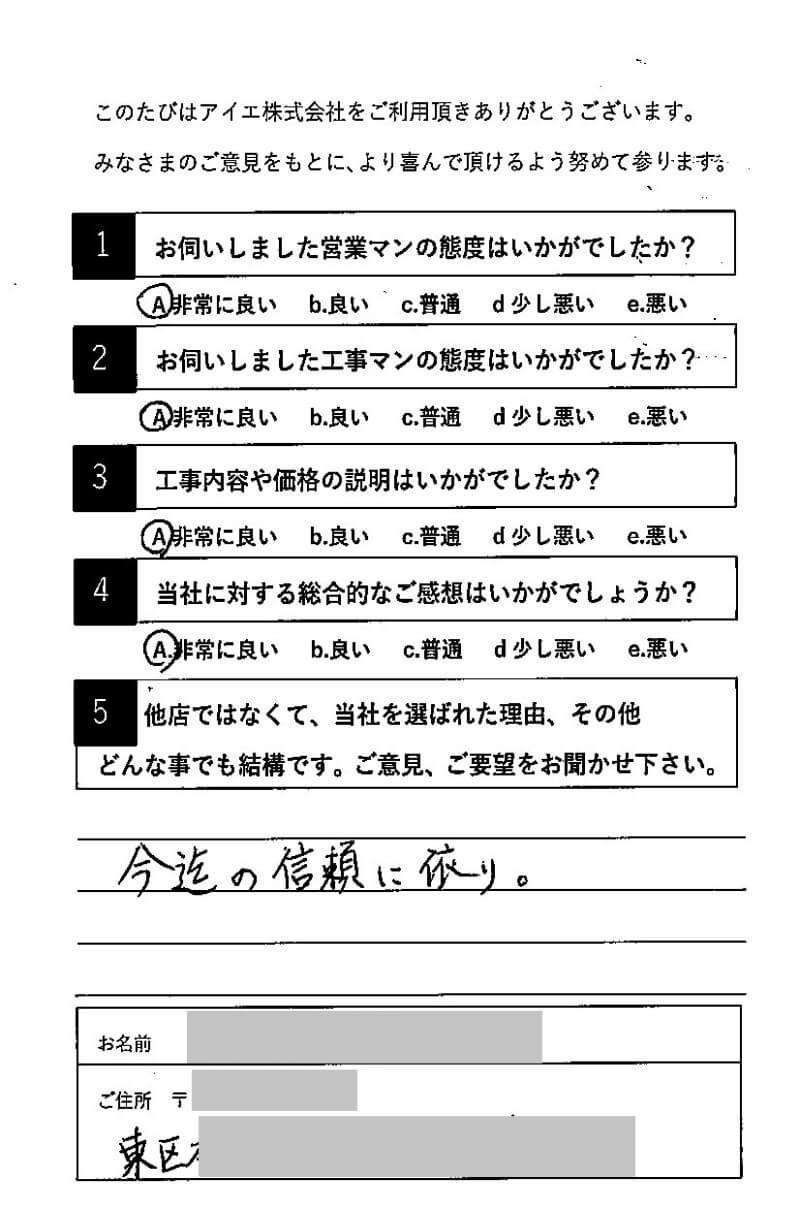 このたびはアイエ株式会社をご利用頂きありがとうございます。
みなさまのご意見をもとに、より喜んで頂けるよう努めて参ります。
1 お伺いしました営業マンの態度はいかがでしたか？
A非常に良い b.良い c.普通 d少し悪い e.悪い
2 お伺いしました工事マンの態度はいかがでしたか？
A非常に良い b.良い c.普通 d少し悪い e.悪い
3 工事内容や価格の説明はいかがでしたか？
A非常に良い b.良い c.普通 d少し悪い e.悪い
4 当社に対する総合的なご感想はいかがでしょうか？
A.非常に良い b.良い c.普通 d少し悪い e.悪い
5 他店ではなくて、当社を選ばれた理由、その他
どんな事でも結構です。ご意見、ご要望をお聞かせ下さい。
今迄の信頼に依り。
お名前
ご住所 〒
東区